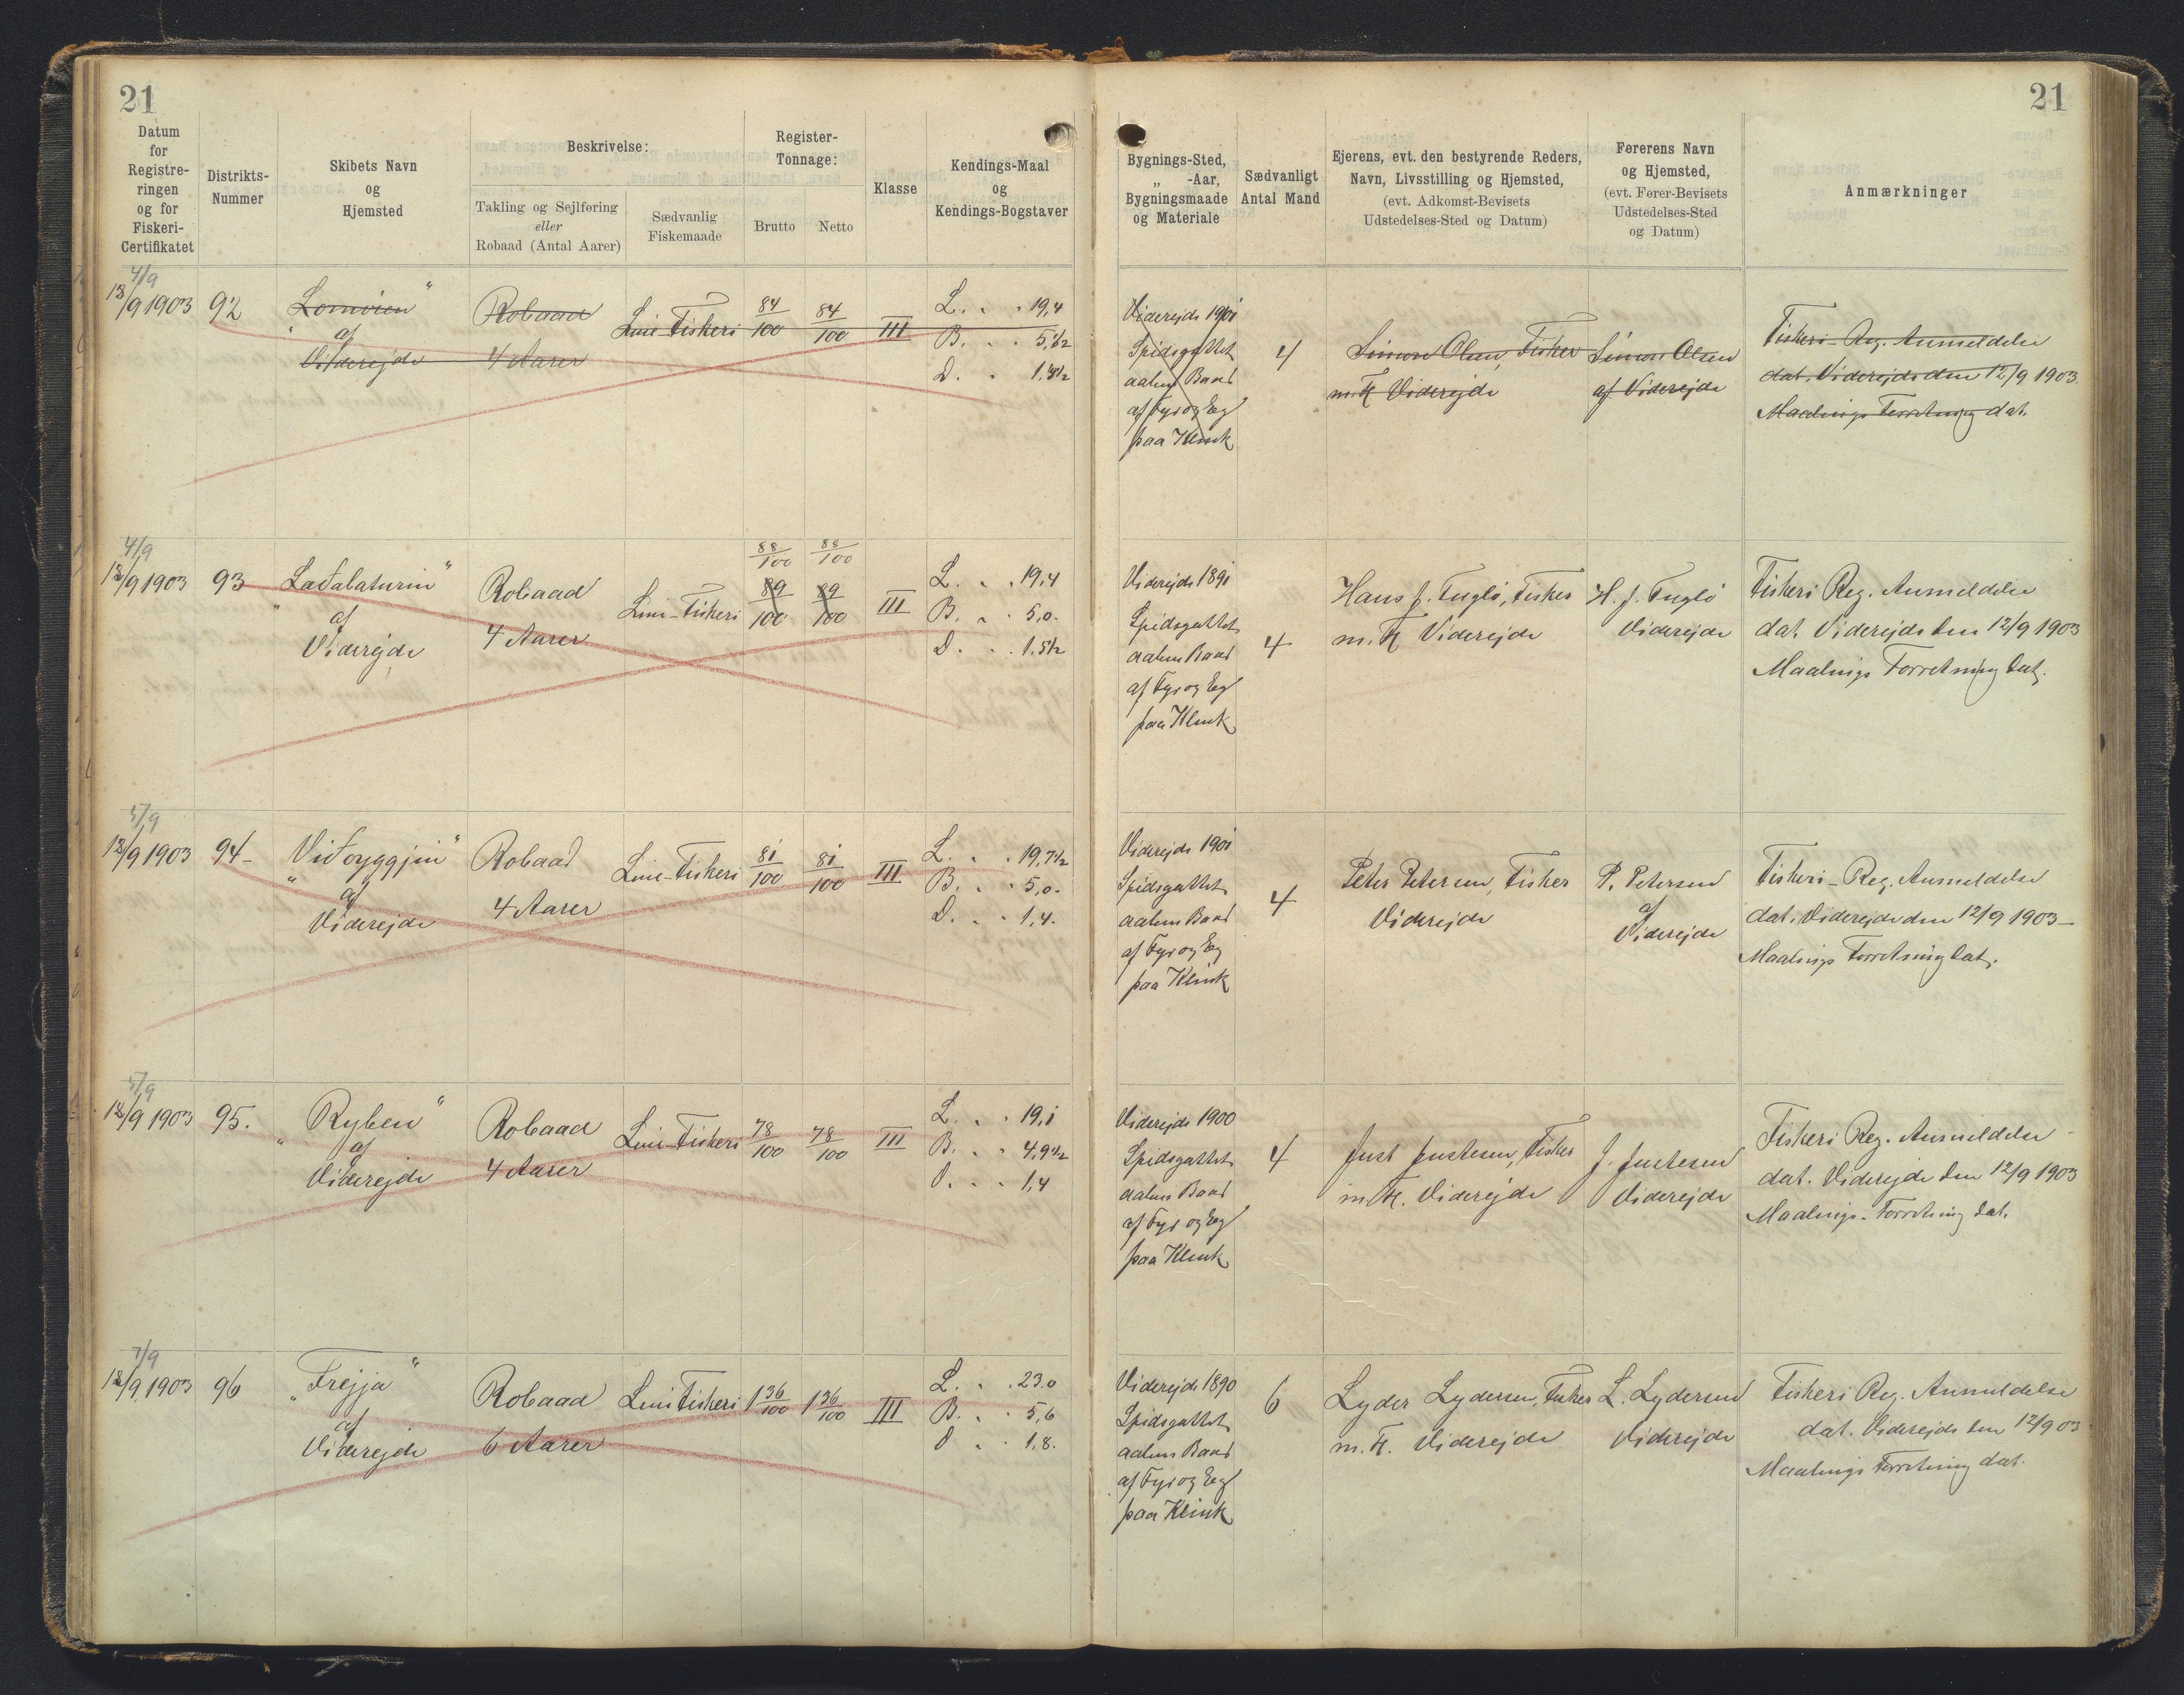 21
21
Datum for Registreringen og for Fiskeri-Certifikatet
Distrikts-Nummer
Skibets Navn og Hjemsted
Beskrivelse:
Takling og Sejlføring eller Robaad (Antal Aarer)
Sædvanlig Fiskemaade
Register-Tonnage:
Brutto
Netto
Klasse
Kendings-Maal og Kendings-Bogstaver
Bygnings-Sted, „ -Aar, Bygningsmaade og Materiale
Sædvanligt Antal Mand
Ejerens, evt. den bestyrende Reders, Navn, Livsstilling og Hjemsted, (evt. Adkomst-Bevisets Udstedelses-Sted og Datum)
Førerens Navn og Hjemsted, (evt. Fører-Bevisets Udstedelses-Sted og Datum)
Anmærkninger
4/9
/9 1903
92
„Lomvien“
af
Viderejde
Robaad
4 Aarer
Line-Fiskeri
84/100
84/100
III
L. . . 19,4
B. . .
D. .
Viderejde 1901
Spidsgattet
aaben Baad
af Fyr og Eeg
paa Klink
4
Simon Olsen, Fisker
m. H Viderejde
Simon Olsen
af Viderejde
Fiskeri-Reg. Anmeldelse
dat. Viderejde den 12/9 1903.
Maalings Forretning dat.
4/9
/9 1903
93
„Ladalaturin“
af
Viderejde
Robaad
4 Aarer
Line-Fiskeri
88/100
88/100
89/100
89/100
III
L. . . 19,4
B. . . 5,0.
D. . . 1,5½
Viderejde 1891
Spidsgattet
aaben Baad
af Fyr og Eeg
paa Klink
4
Hans J. Fuglø, Fisker
m. H Viderejde
H. J. Fuglø
Viderejde
Fiskeri Reg. Anmeldelse
dat. Viderejde den 12/9 1903
Maalings Forretning dat.
5/9
/9 1903
94-
„Viðoyggjin“
af
Viderejde
Robaad
4 Aarer
Line-Fiskeri
81/100
81/100
III
L. . . 19,7½
B. . . 5,0.
D. . . 1,4.
Viderejde 1901
Spidsgattet
aaben Baad
af Fyr og Eeg
paa Klink
4
Peter Petersen, Fisker
Viderejde
P. Petersen
af
Viderejde
Fiskeri-Reg. Anmeldelse
dat. Viderejde den 12/9 1903-
Maalings Forretning dat.
5/9
/9 1903
95.
„Ryben“
af
Viderejde
Robaad
4 Aarer
Line-Fiskeri
78/100
78/100
III
L. . . 19,1
B. . . 4,9½
D. . . 1,4
Viderejde 1900
Spidsgattet
aaben Baad
af Fyr og Eeg
paa Klink
4
Just Justesen, Fisker
m. H. Viderejde
J. Justesen
Viderejde
Fiskeri Reg. Anmeldelse
dat. Viderejde den 12/9 1903
Maalings-Forretning dat.
7/9
/9 1903
96
„Frejja“
af
Viderejde
Robaad
6 Aarer
Line Fiskeri
1 36/100
1 36/100
III
L. . . 23.0
B. . . 5,6
D . . 1,8.
Viderejde 1890
Spidsgattet
aaben Baad
af Fyr og Eeg
paa Klink
6
Lyder Lydersen, Fisker
m. H. Viderejde
L. Lydersen
Viderejde
Fiskeri Reg. Anmeldelse
dat. Viderejde den 12/9 03
Maalings Forretning dat.